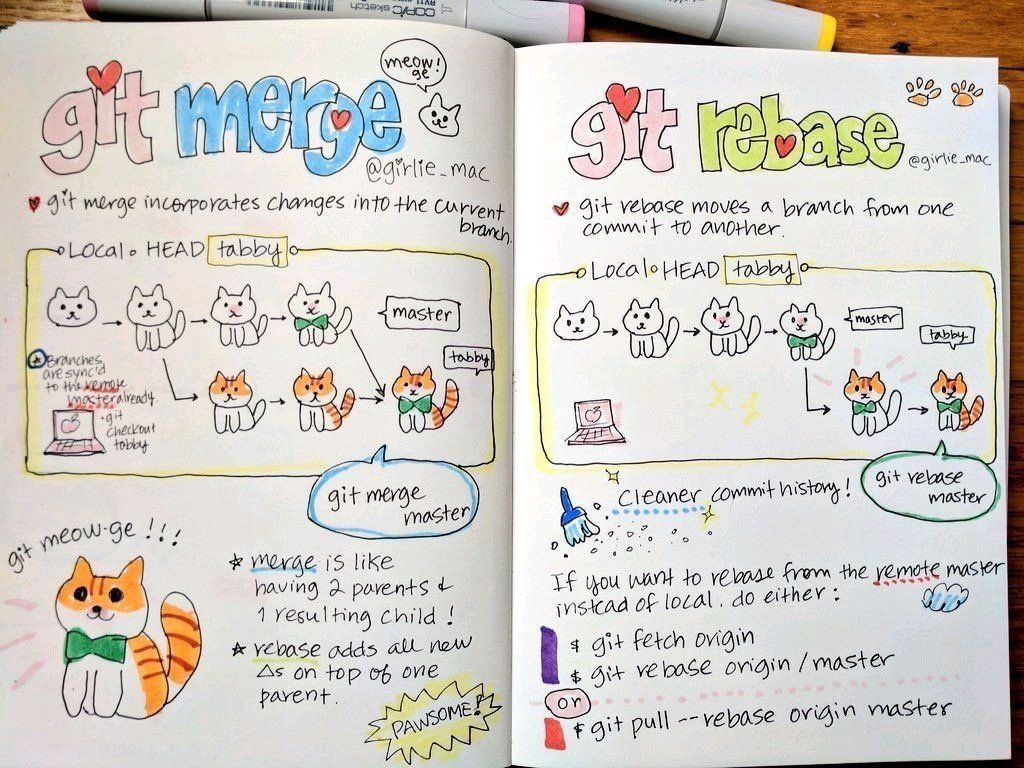 COPIC sketch
git merge
meow!
ge
@girlie_mac
git merge incorporates changes into the current
branch.
Local HEAD tabby
master
tabby
Branches
are sync'd
to the remote
master already.
git
checkout
tabby
git merge
master
git meow-ge !!!
merge is like
having 2 parents &
1 resulting child!
rebase adds all new
Δs on top of one
parent.
PAWSOME!
git rebase
@girlie_mac
git rebase moves a branch from one
commit to another.
Local HEAD tabby
master
tabby
git rebase
master
cleaner commit history!
If you want to rebase from the remote master
instead of local, do either:
$ git fetch origin
$ git rebase origin/master
or
$ git pull --rebase origin master